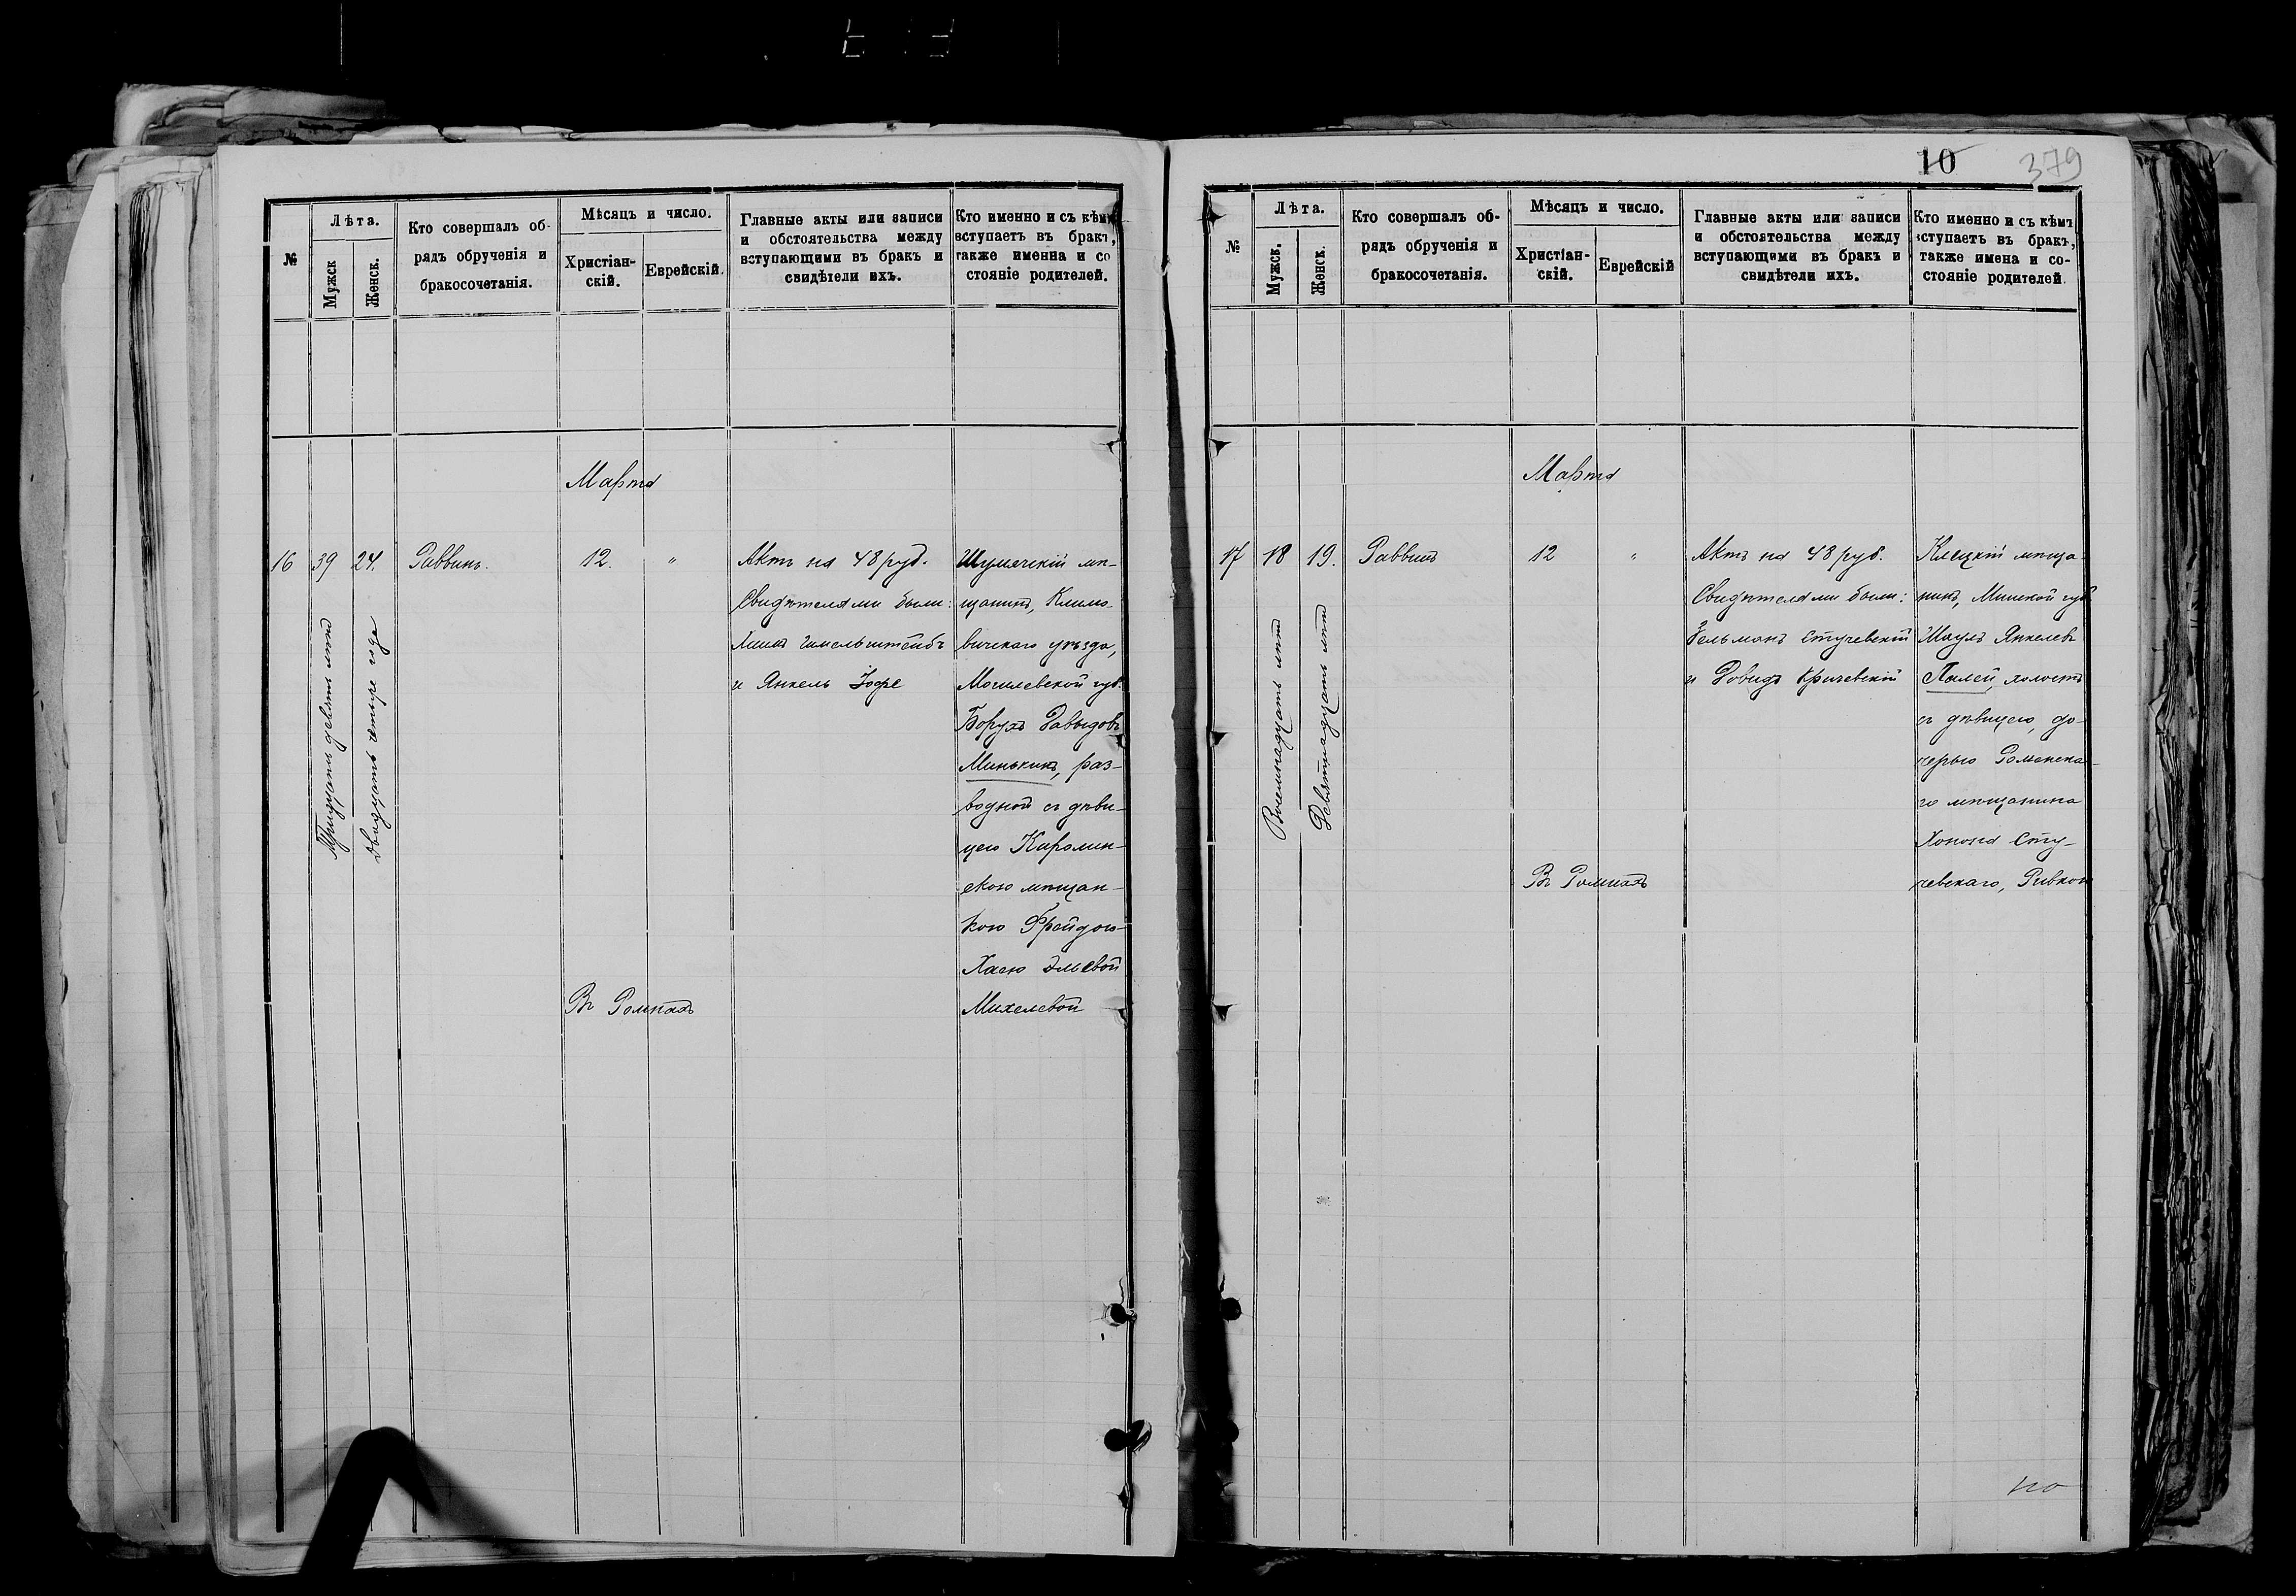 10
379
№
Лѣта.
Мужск
Женск.
Кто совершалъ об-
рядъ обрученія и
бракосочетанія.
Мѣсяцъ и число.
Христіан-
скій.
Еврейскій.
Главные акты или записи
и обстоятельства между
вступающими въ бракъ и
свидѣтели ихъ.
Кто именно и съ кѣмъ
вступаетъ въ бракъ,
также именна и со
стояніе родителей.
Марта
16
39
24.
Тридцать девять лѣтъ
двадцать четыре года
Раввинъ.
12.
"
Актъ на 48 руб.
Свидѣтелями были:
и Янкель Іофе
Шумячскій мѣ-
щанинъ, Климо-
вичскаго уѣзда,
Могилевской губ.
Борухъ Давыдовъ
Минькинъ, раз-
водной съ дѣви-
цею Каролин-
скою мѣщан-
кою Фрейдою-
Хасею Эльевой
Михелевой
Въ Ромнахъ
№
Лѣта.
Мужск.
Женск.
Кто совершалъ об-
рядъ обрученія и
бракосочетанія.
Мѣсяцъ и число.
Христіан-
скій.
Еврейскій
Главные акты или записи
и обстоятельства между
вступающими въ бракъ и
свидѣтели ихъ.
Кто именно и съ кѣмъ
вступаетъ въ бракъ,
также имена и со-
стояніе родителей.
Марта
17
18
19.
Восемнадцать лѣтъ
Девятнадцать лѣтъ
Раввинъ
12
"
Актъ на 48 руб.
Свидѣтелями были:
Зельманъ Стучевскій
и Довидъ Кричевскій
Клецкій мѣща-
нинъ, Минской губ
Шаулъ Янкелевъ
Палей, холостъ
съ дѣвицею, до-
черью Роменска-
го мѣщанина
Хонона Сту-
чевскаго, Ривкою
Въ Ромнахъ